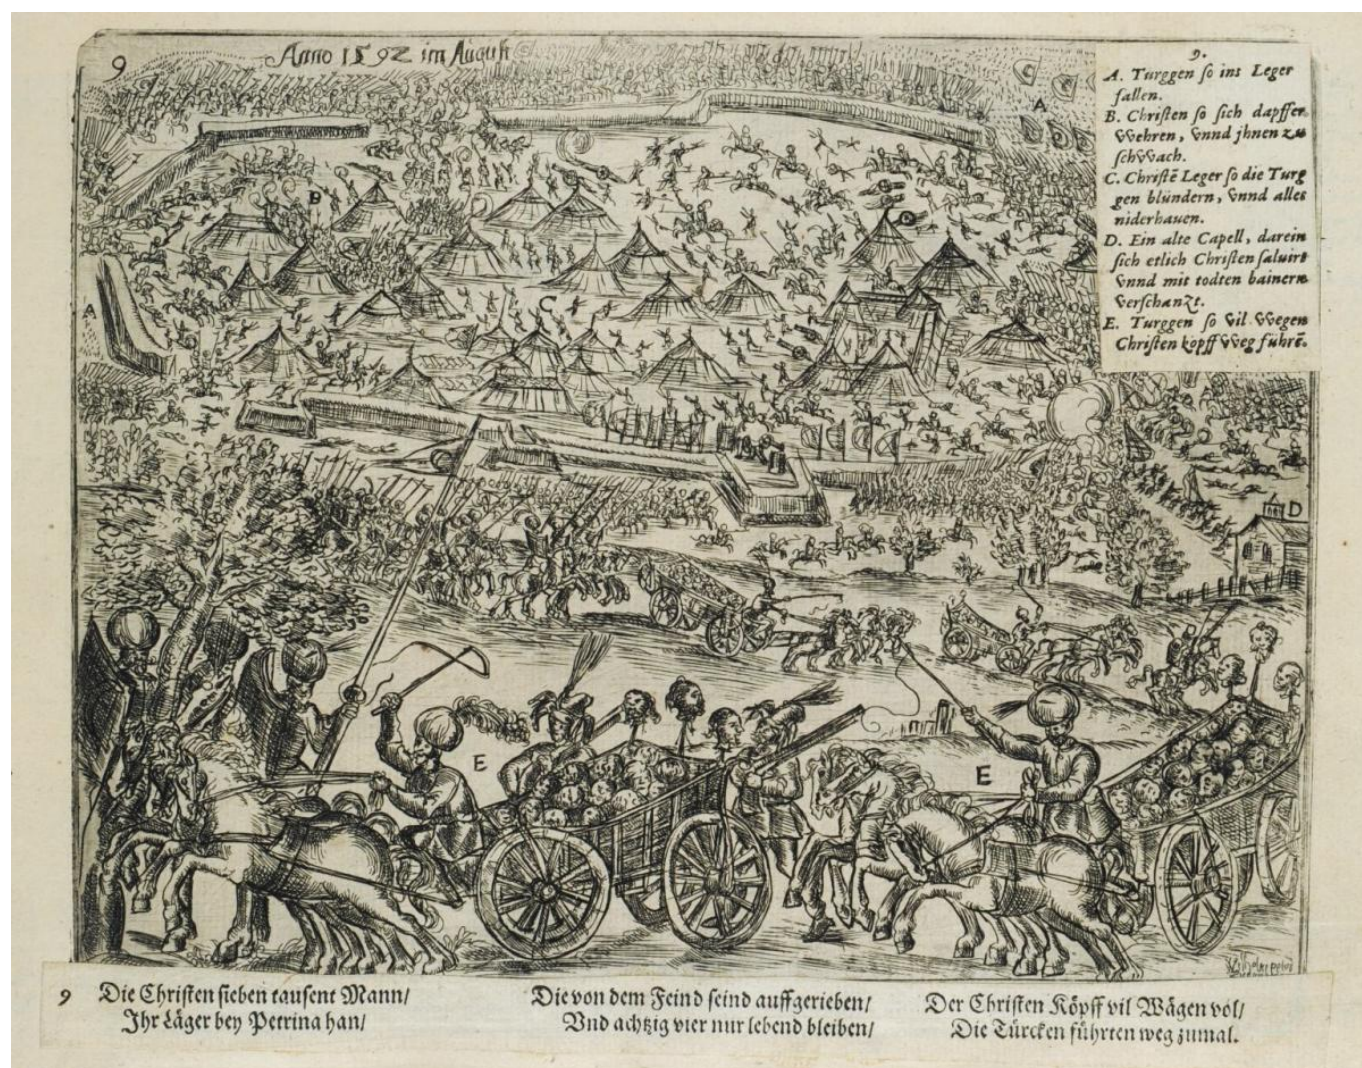 9
Anno 1592 im Augusti
9.
A. Turggen so ins Leger
fallen.
B. Christen so sich dapffer
wehren, vnnd jhnen zu
schwach.
C. Christē Leger so die Turg
gen blündern, vnnd alles
niderhauen.
D. Ein alte Capell, darein
sich etlich Christen saluirt
vnnd mit todten bainern
verschanzt.
E. Turggen so vil wegen
Christen kopff weg führē.
A
B
A
C
D
E
E
9 Die Christen sieben tausent Mann/
Ihr Läger bey Petrina han/
Die von dem Feind seind auffgerieben/
Vnd achtzig vier nur lebend bleiben/
Der Christen Köpff vil Wägen vol/
Die Türcken führten weg zumal.